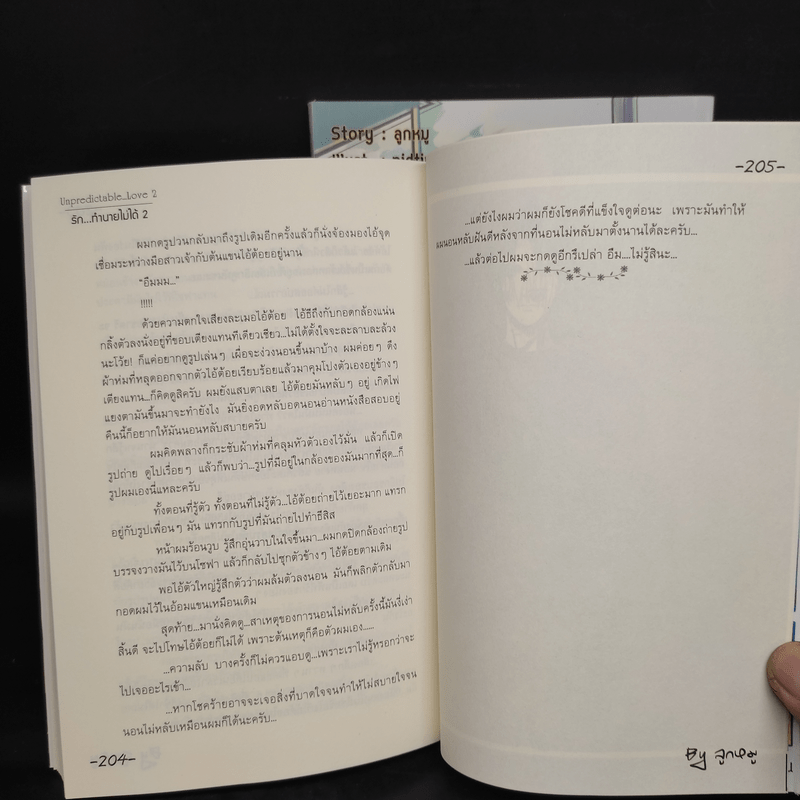 Story : ลูกหมู
Unpredictable_Love 2
รัก...ทำนายไม่ได้ 2
ผมกดรูปวนกลับมาถึงรูปเดิมอีกครั้งแล้วก็นั่งจ้องมองไอ้จุด
เชื่อมระหว่างมือสาวเจ้ากับต้นแขนไอ้ต้อยอยู่นาน
"อืมมม..."
!!!!!
ด้วยความตกใจเสียงละเมอไอ้ต้อย ไอ้ธีถึงกับกอดกล้องแน่น
กลิ้งตัวลงนั่งอยู่ที่ขอบเตียงแทนทีเดียวเชียว...ไม่ได้ตั้งใจจะละลาบละล้วง
นะโว้ย! ก็แค่อยากดูรูปเล่นๆ เผื่อจะง่วงนอนขึ้นมาบ้าง ผมค่อยๆ ดึง
ผ้าห่มที่หลุดออกจากตัวไอ้ต้อยเรียบร้อยแล้วมาคลุมโปงตัวเองอยู่ข้างๆ
เตียงแทน...ก็คิดดูสิครับ ผมยังแสบตาเลย ไอ้ต้อยมันหลับๆ อยู่ เกิดไฟ
แยงตามันขึ้นมาจะทำยังไง มันยิ่งอดหลับอดนอนอ่านหนังสือสอบอยู่
คืนนี้ก็อยากให้มันนอนหลับสบายครับ
ผมคิดพลางก็กระชับผ้าห่มที่คลุมหัวตัวเองไว้มั่น แล้วก็เปิด
รูปถ่าย ดูไปเรื่อยๆ แล้วก็พบว่า...รูปที่มีอยู่ในกล้องของมันมากที่สุด...ก็
รูปผมเองนี่แหละครับ
ทั้งตอนที่รู้ตัว ทั้งตอนที่ไม่รู้ตัว...ไอ้ต้อยถ่ายไว้เยอะมาก แทรก
อยู่กับรูปเพื่อนๆ มัน แทรกกับรูปที่มันถ่ายไปทำธีสิส
หน้าผมร้อนวูบ รู้สึกอุ่นวาบในใจขึ้นมา...ผมกดปิดกล้องถ่ายรูป
บรรจงวางมันไว้บนโซฟา แล้วก็กลับไปซุกตัวข้างๆ ไอ้ต้อยตามเดิม
พอไอ้ตัวใหญ่รู้สึกตัวว่าผมล้มตัวลงนอน มันก็พลิกตัวกลับมา
กอดผมไว้ในอ้อมแขนเหมือนเดิม
สุดท้าย...มานั่งคิดดู...สาเหตุของการนอนไม่หลับครั้งนี้มันงี่เง่า
สิ้นดี จะไปโทษไอ้ต้อยก็ไม่ได้ เพราะต้นเหตุก็คือตัวผมเอง.....
...ความลับ บางครั้งก็ไม่ควรแอบดู...เพราะเราไม่รู้หรอกว่าจะ
ไปเจออะไรเข้า...
...หากโชคร้ายอาจจะเจอสิ่งที่บาดใจจนทำให้ไม่สบายใจจน
นอนไม่หลับเหมือนผมก็ได้นะครับ...
-204-
-205-
...แต่ยังไงผมว่าผมก็ยังโชคดีที่แข็งใจดูต่อนะ เพราะมันทำให้
ผมนอนหลับฝันดีหลังจากที่นอนไม่หลับมาตั้งนานได้ละครับ...
...แล้วต่อไปผมจะกดดูอีกรึเปล่า อืม....ไม่รู้สินะ...
By ลูกหมู